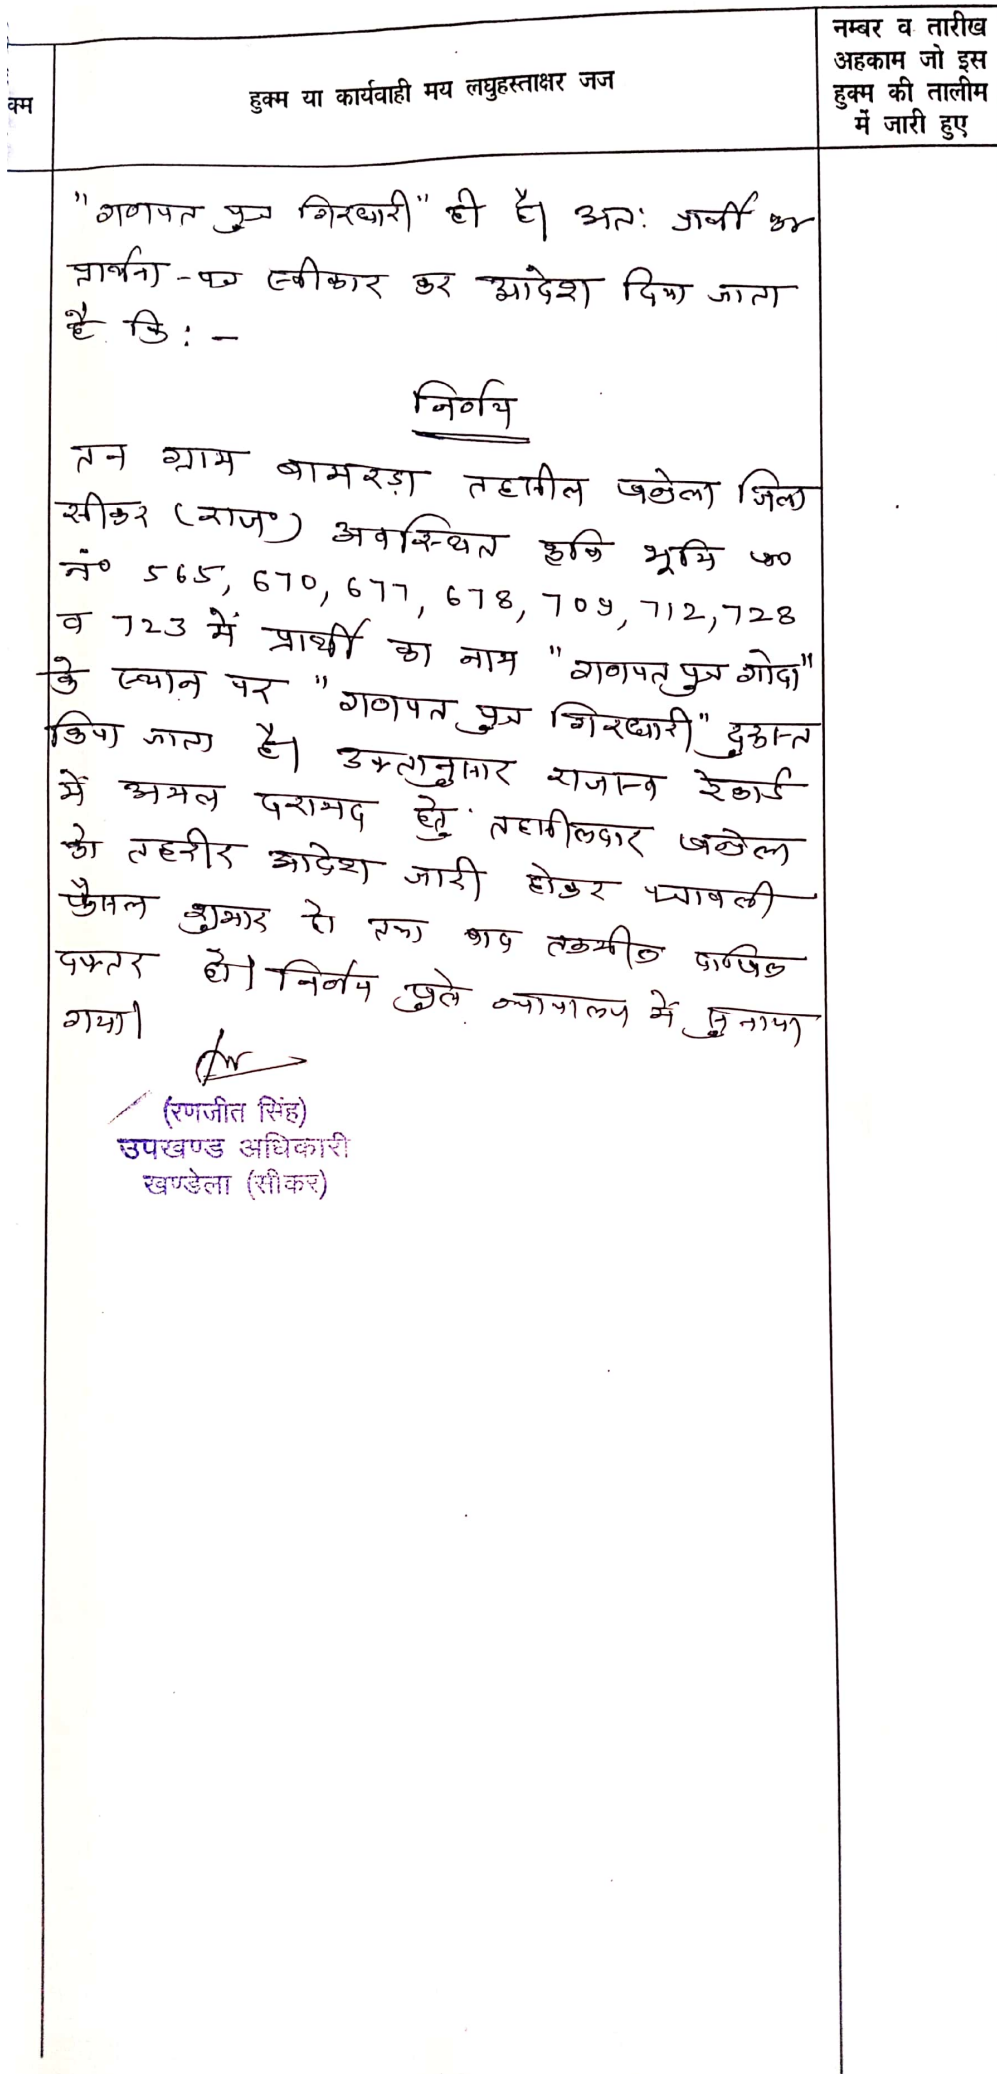 क्म
हुक्म या कार्यवाही मय लघुहस्ताक्षर जज
नम्बर व तारीख
अहकाम जो इस
हुक्म की तालीम
में जारी हुए
"गणपत पुत्र गिरधारी" ही है। अतः प्रार्थी का
प्रार्थना-पत्र स्वीकार कर आदेश दिया जाता
है कि : -
निर्णय
तन ग्राम बामरड़ा तहसील खण्डेला जिला
सीकर (राज०) अवस्थित कृषि भूमि ख०
नं० 565, 670, 677, 678, 709, 712, 728
व 723 में प्रार्थी का नाम "गणपत पुत्र गोदा"
के स्थान पर "गणपत पुत्र गिरधारी" दुरूस्त
किया जाता है। उक्तानुसार राजस्व रेकार्ड
में अमल दरामद हेतु तहसीलदार खण्डेला
को तहरीर आदेश जारी होकर पत्रावली
फैसल शुमार हो तथा बाद तकमील दाखिल
दफ्तर हो। निर्णय खुले न्यायालय में सुनाया
गया।
(रणजीत सिंह)
उपखण्ड अधिकारी
खण्डेला (सीकर)